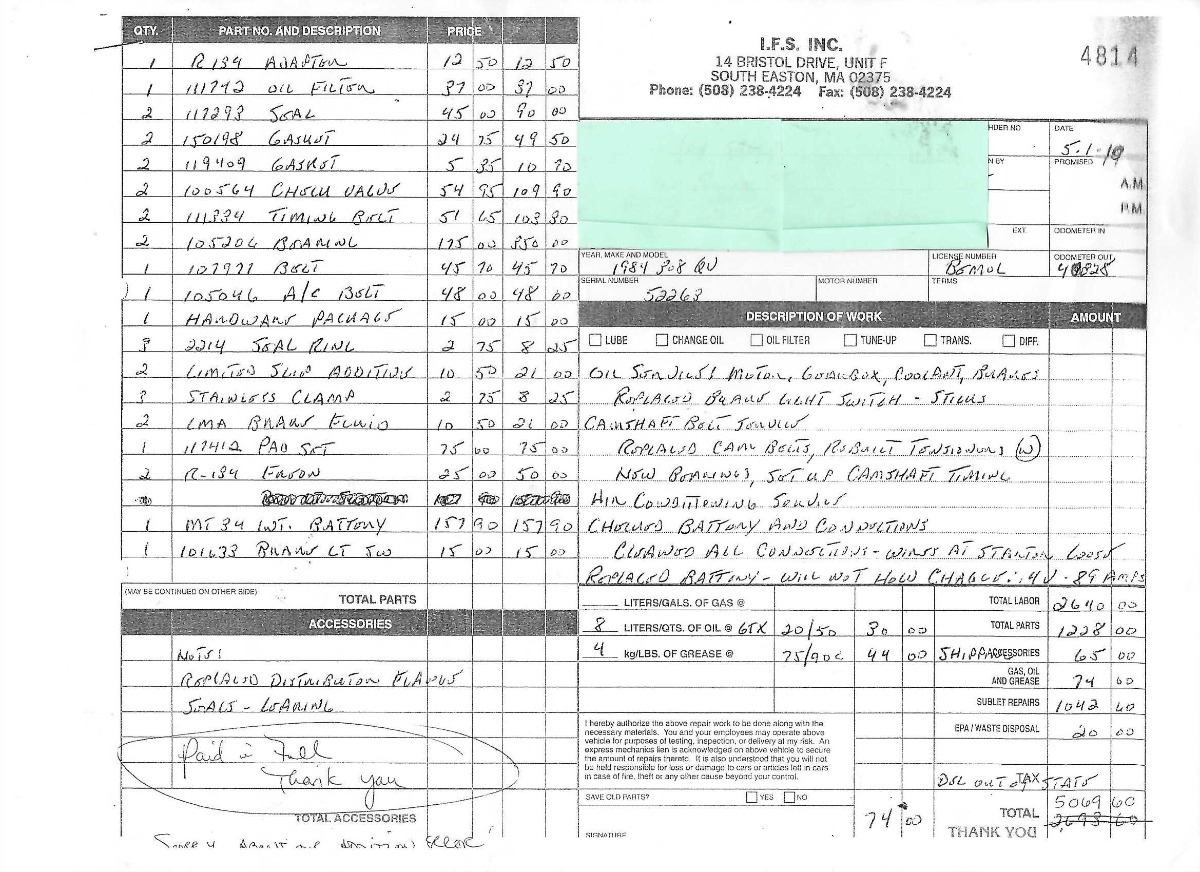 QTY. PART NO. AND DESCRIPTION PRICE
1 R134 ADAPTOR 12 50 12 50
1 111742 OIL FILTER 37 00 37 00
2 117293 SEAL 45 00 90 00
2 150198 GASKET 24 75 49 50
2 119409 GASKET 5 35 10 70
2 100564 CHECK VALVE 54 95 109 90
2 111334 TIMING BELT 51 65 103 30
2 105206 BEARING 175 00 350 00
1 107971 BELT 45 70 45 70
1 105046 A/C BELT 48 00 48 00
1 HARDWARE PACKAGE 15 00 15 00
3 2214 SEAL RING 2 75 8 25
2 LIMITED SLIP ADDITIVE 10 50 21 00
3 STAINLESS CLAMP 2 75 8 25
2 LMA BRAKE FLUID 10 50 21 00
1 117412 PAD SET 75 00 75 00
2 R-134 FREON 25 00 50 00
1 MT34 INT. BATTERY 157 90 157 90
1 101633 BRAKE LT SW 15 00 15 00
(MAY BE CONTINUED ON OTHER SIDE) TOTAL PARTS
ACCESSORIES
NOTE:
REPLACED DISTRIBUTOR FLANGE
SEALS - LEAKING
Paid in Full
Thank you
TOTAL ACCESSORIES
Sorry about our addition error!
I.F.S. INC.
14 BRISTOL DRIVE, UNIT F
SOUTH EASTON, MA 02375
Phone: (508) 238-4224 Fax: (508) 238-4224
4814
RDER NO DATE
5-1-19
N BY PROMISED
A.M.
P.M.
EXT. ODOMETER IN
YEAR, MAKE AND MODEL LICENSE NUMBER ODOMETER OUT
1984 308 QV
SERIAL NUMBER MOTOR NUMBER TERMS
52263
DESCRIPTION OF WORK AMOUNT
LUBE CHANGE OIL OIL FILTER TUNE-UP TRANS. DIFF.
OIL SERVICE: MOTOR, GEARBOX, COOLANT, BRAKES
REPLACED BRAKE LIGHT SWITCH - STICKS
CAMSHAFT BELT SERVICE
REPLACED CAM BELTS, REBUILT TENSIONERS (W)
NEW BEARINGS, SET UP CAMSHAFT TIMING
AIR CONDITIONING SERVICE
CHECKED BATTERY AND CONNECTIONS
CLEANED ALL CONNECTIONS - WIRES AT STARTER LOOSE
REPLACED BATTERY - WILL NOT HOLD CHARGE: .4V - 89 AMPS
LITERS/GALS. OF GAS @ TOTAL LABOR 2640 00
8 LITERS/QTS. OF OIL @ GTX 20/50 30 00 TOTAL PARTS 1228 00
4 kg/LBS. OF GREASE @ 75/90C 44 00 SHIPP ACCESSORIES 65 00
GAS, OIL AND GREASE 74 00
SUBLET REPAIRS 1042 60
EPA / WASTE DISPOSAL 20 00
I hereby authorize the above repair work to be done along with the
necessary materials. You and your employees may operate above
vehicle for purposes of testing, inspection, or delivery at my risk. An
express mechanics lien is acknowledged on above vehicle to secure
the amount of repairs thereto. It is also understood that you will not
be held responsible for loss or damage to cars or articles left in cars
in case of fire, theft or any other cause beyond your control.
DEL OUT OF STATE TAX
SAVE OLD PARTS? YES NO
74 00 TOTAL 5069 60
2693 60
THANK YOU
SIGNATURE